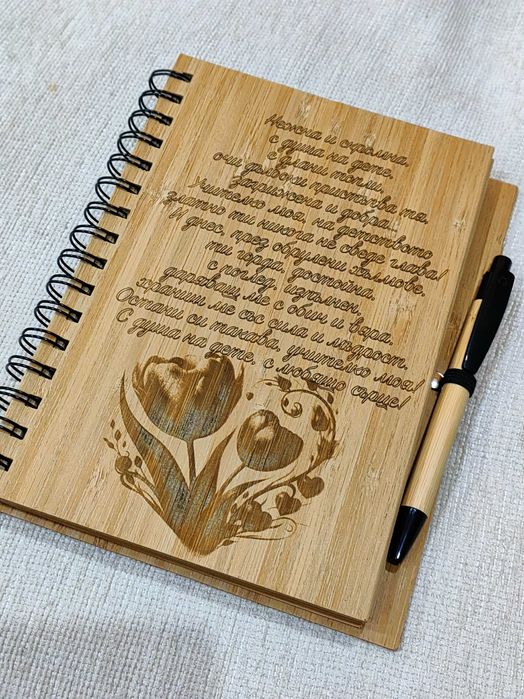 Нежна и скромна,
с душа на дете,
с длани топли,
очи дълбоки пристъпва тя.
Загрижена и добра...
Учителко моя, на детството
златно ти никога не сведе глава!
И днес, през обрулени хълмове,
ти горда, достойна,
с поглед, изпълнен,
даряваш ме с обич и вяра
храниш ме със сила и мъдрост.
Остани си такава, учителко моя!
С душа на дете, с любящо сърце!